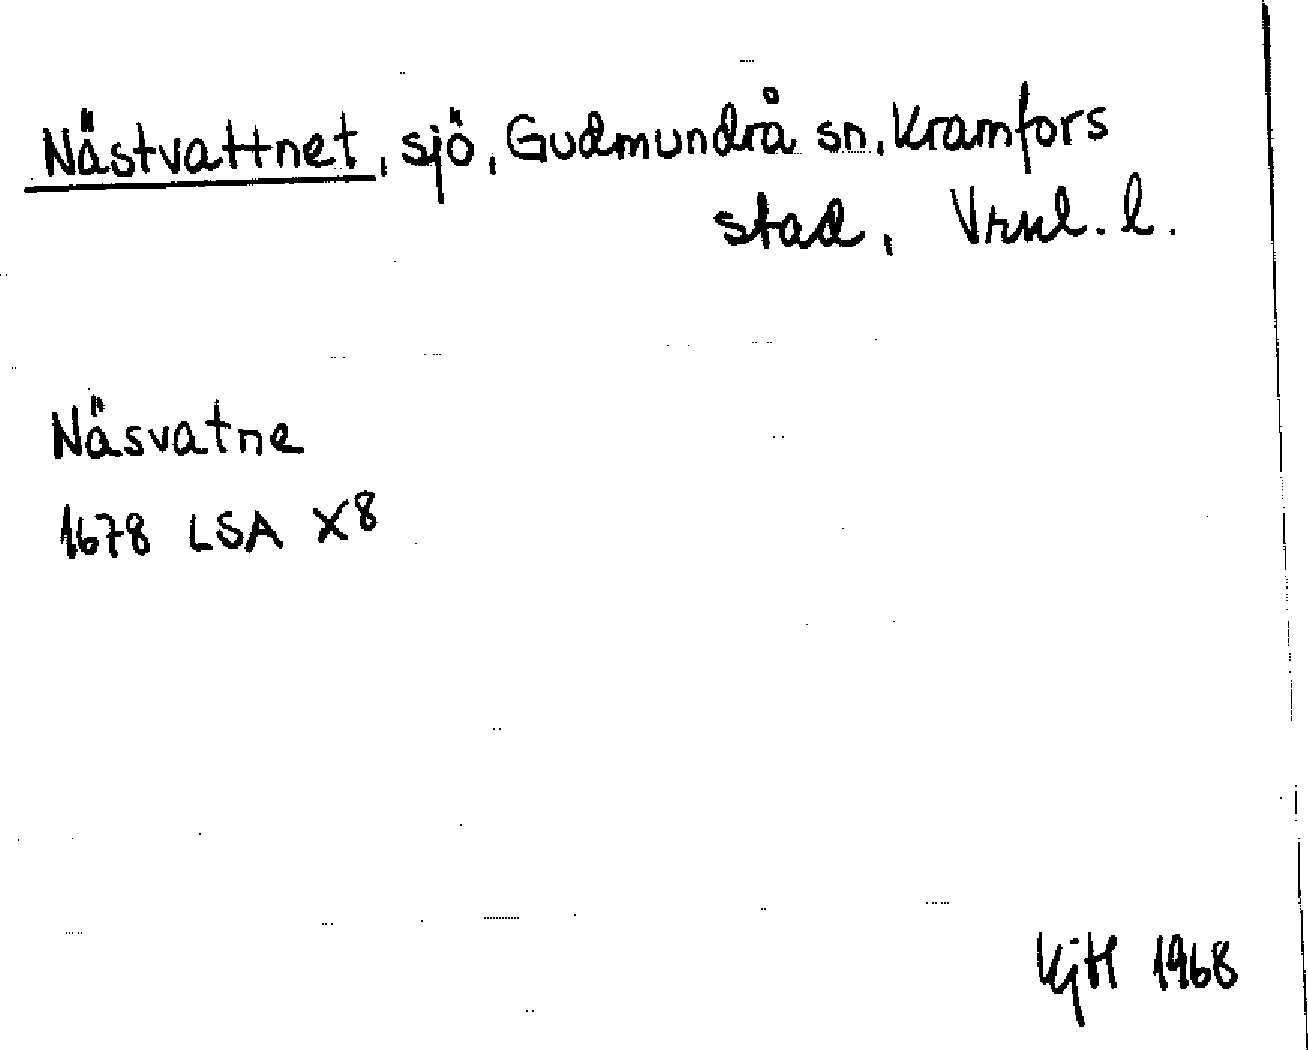 Nästvattnet, sjö, Gudmundrå sn, Kramfors
stad, Vrnl. l.
Näsvatne
1678 LSA X8
KjtH 1968